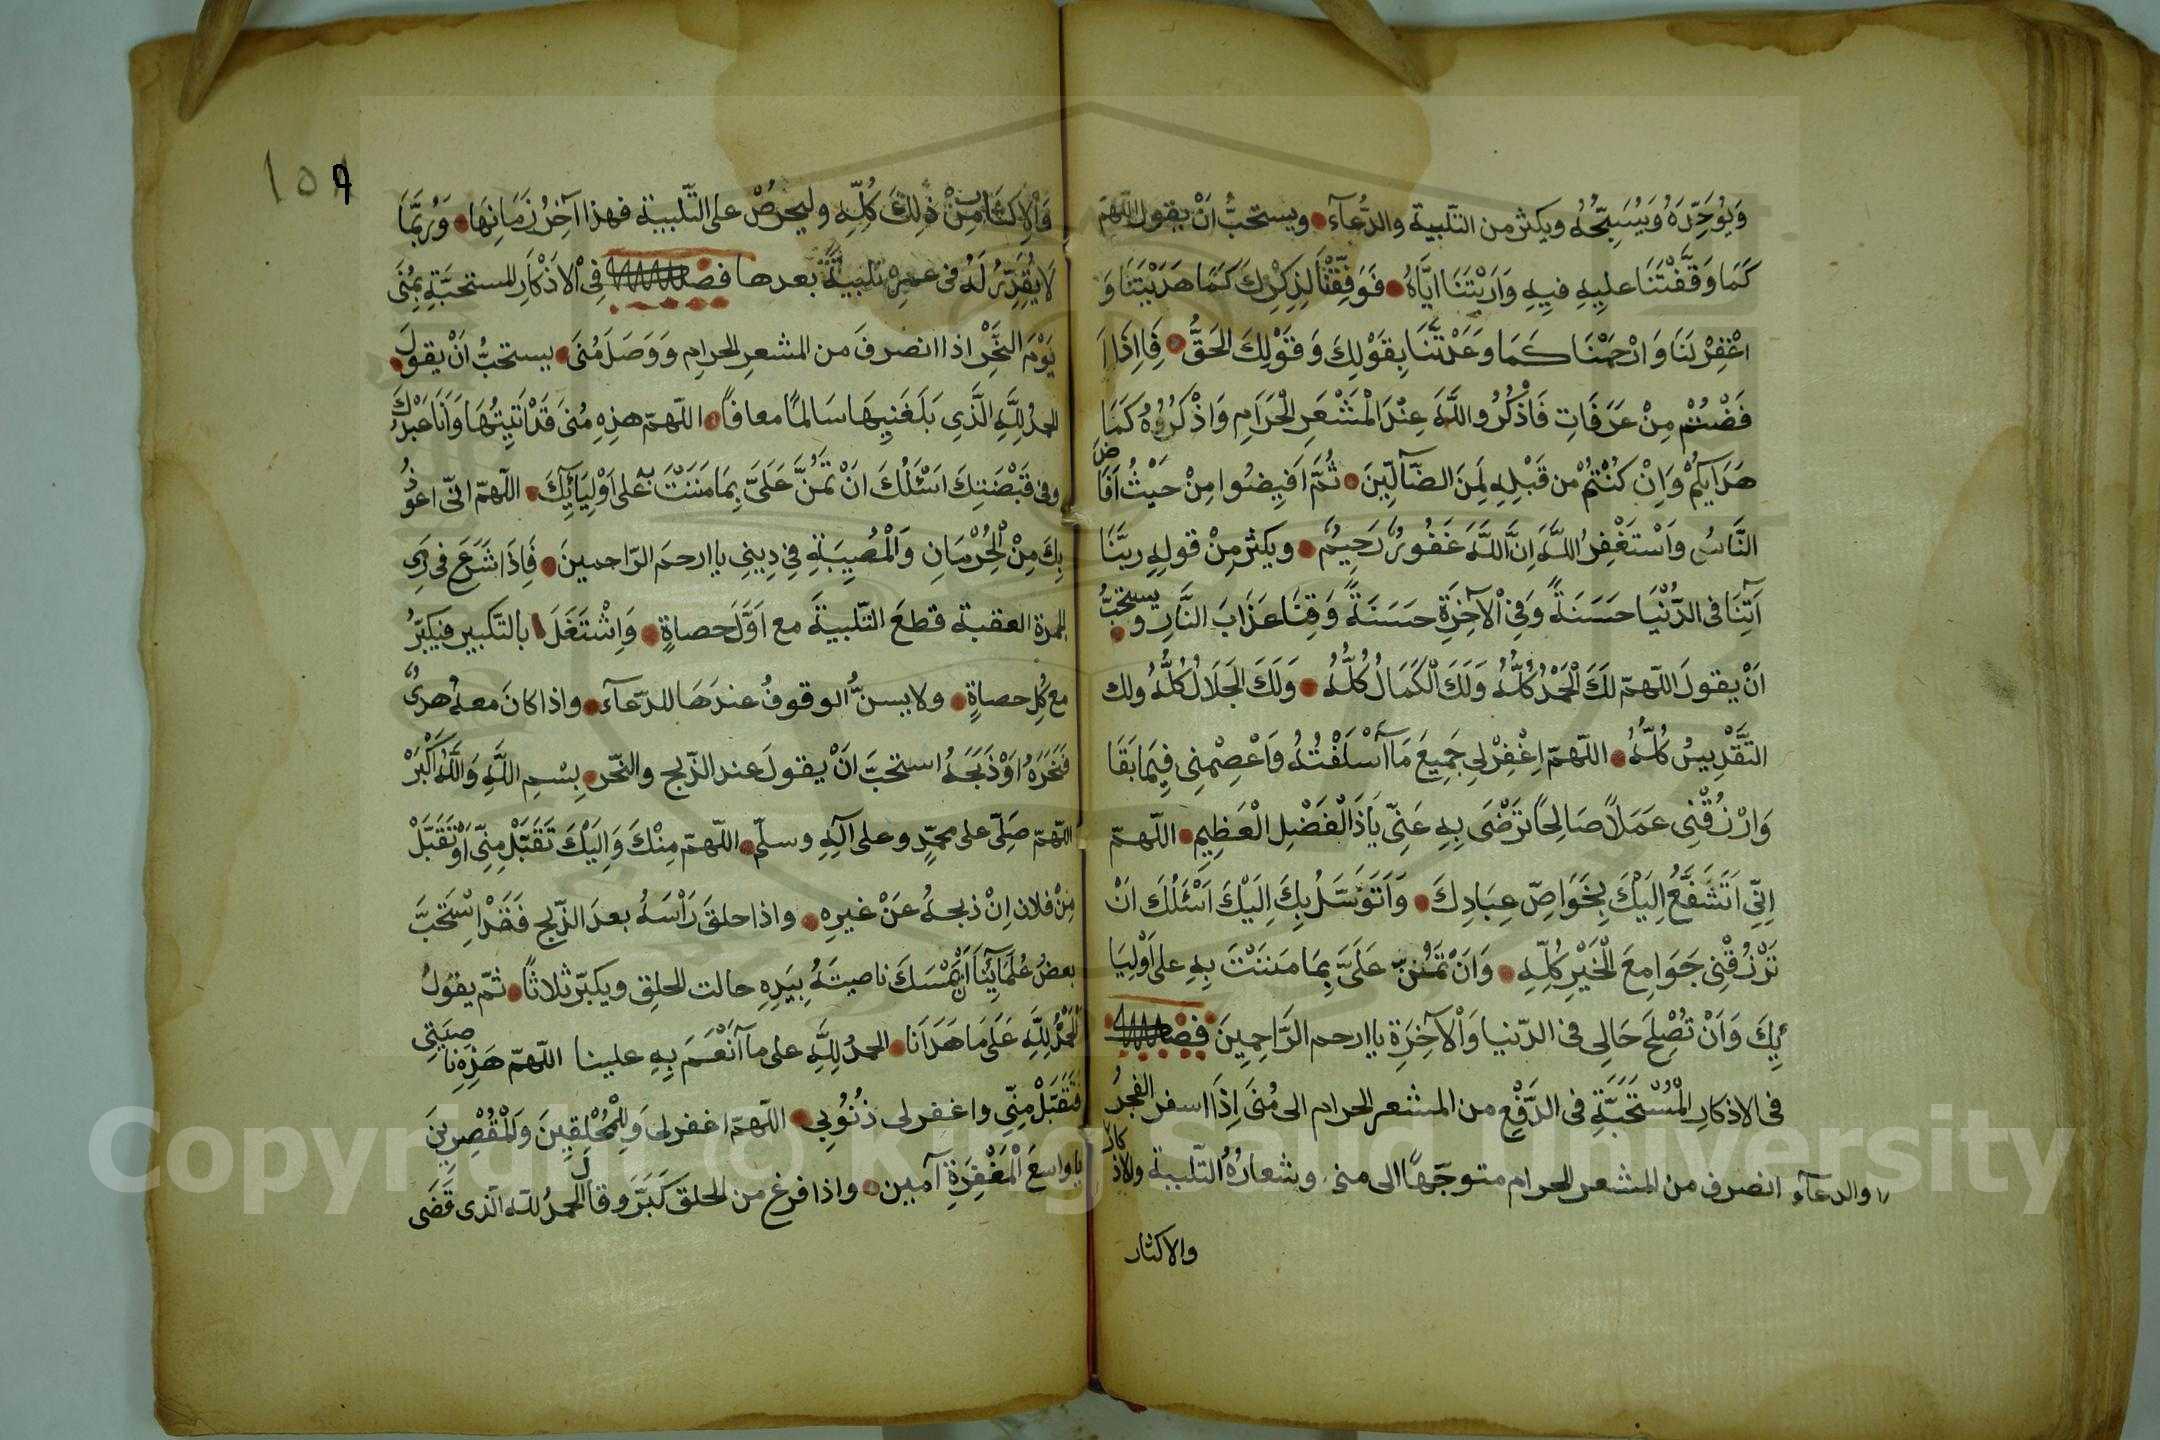 وَيُوَحِّدَهُ وَيُسَبِّحُهُ ويكثر من التلبية والدُّعآء ويستحبُّ اَنْ يقول اللّهمّ
كَمَا وَقَّفْتَنَا عليهِ فيهِ وَاَرَيْتَنَا ايَّاهُ فَوَفِّقْنَا لِذِكْرِكَ كَمَا هَدَيْتَنَا وَ
اغْفِرْ لَنَا وَارْحَمْنَا كَمَا وَعَدْتَّنَا بِقَوْلِكَ وَقَوْلِكَ الحَقُّ فَاِذَا اَ
فَضْتُمْ مِنْ عَرَفَاتٍ فَاذْكُرُوا اللَّهَ عِنْدَ الْمَشْعَرِ الْحَرَامِ وَاذْكُرُوهُ كَمَا
هَدَايكُمْ وَاِنْ كُنْتُمْ من قَبْلِهِ لَمِنَ الضَّآلِّينَ ثُمَّ اَفِيضُوا مِنْ حَيْثُ اَفَاضَ
النَّاسُ وَاسْتَغْفِرُ اللَّهَ اِنَّ اللَّهَ غَفُورٌ رَحِيمٌ ويكثر مِنْ قولِهِ ربَّنَا
آتِنَا فى الدُّنْيَا حَسَنَةً وَفِي الآخِرَةِ حَسَنَةً وَقِنَا عَذَابَ النَّارِ ويستحبُّ
اَنْ يقولَ اللّهمّ لكَ الْحَمْدُ كُلُّهُ وَلَكَ الْكَمَالُ كُلُّهُ وَلَكَ الجَلَالُ كُلُّهُ ولك
التَّقْدِيسُ كُلُّهُ اللّهمّ اِغْفِرْ لِي جَمِيعَ مَا اَسْلَفْتُهُ وَاعْصِمْنِى فِيمَا بَقَا
وَارْزُقْنِى عَمَلًا صَالِحًا تَرْضَى بِهِ عَنِّى يَاذَا الْفَضْلِ الْعَظِيمِ اللّهمّ
اِنِّى اَتَشَفَّعُ اِلَيْكَ بِخَوَاصِّ عِبَادِكَ وَاَتَوَسَّلُ بِكَ اِلَيْكَ اَسْئَلُكَ اَنْ
تَرْزُقْنِى جَوَامِعَ الْخَيْرِ كُلِّهِ وَاَنْ تَمُنَّ عَلَىَّ بِمَا مَنَنْتَ بِهِ على اَوْلِيَا
ئِكَ وَاَنْ تُصْلِحَ حَالِى فى الدّنيا وَالآخِرَةِ يا ارحم الرَّاحِمِينَ فصل
فى الاذكارِ الْمُسْتَحَبَّةِ فى الدَّفْعِ من المشعر الحرام الى مُنَى اِذَا اسفر الفجرُ
انصرف من المشعر الحرام متوجّهًا الى منى وشعارُهُ التّلبية والاذكار
والدعآء
والاكثار
١٥٩
وَالاِكثار مِنْ ذلك كُلِّهِ وليحرصْ على التَّلبية فهذا آخرُ زَمَانِهَا وَرُبَّمَا
لَا يُقَدِّرُ لَهُ فى عمرِهْ تلبيةٌ بعدها فصل فى الاَذْكَارِ المستحبَّةِ بِمُنَى
يَوْمَ النَّحْرِ اذا انصرفَ من المشعرِ الحرام وَوَصَلَ مُنَى يستحبُّ اَنْ يقولَ
الحمدُ لِلَّهِ الَّذِى بَلَغَنِيهَا سَالمًا معافًا اللّهمّ هذِهِ مُنى قَدْ اَتَيْتُهَا وَاَنَا عَبْدُكَ
وفى قَبْضَتِكَ اَسْئَلُكَ اَنْ تَمُنَّ عَلَىَّ بِمَا مَنَنْتَ بِهِ على اَوْلِيَائِكَ اللّهمّ انّى اعوذُ
بِكَ مِنْ الْحِرْمَانِ وَالْمُصِيبَةِ فِى دِينِى يا ارحم الرّاحمينَ فَاِذَا شَرَعَ فى رَمِى
الجمرة العقبة قطعَ التّلبيةَ مع اَوَّلَ حصاةٍ وَاشْتَغَلَ بالتكبير فيكبّرُ
مع كُلِ حصاةٍ ولا يسنُّ الوقوفُ عندَهَا للدّعآء واذا كانَ معهُ هدىٌ
فَنَحَرَهُ اَوْ ذَبَحَهُ استحبَّ انْ يقولَ عند الذّبح والنّحر بِسْمِ اللَّهِ وَاللَّهُ اَكْبَرْ
اللّهمّ صَلِّى على محمّدٍ وعلى آلِهِ وسلّم اللّهمّ مِنْكَ وَاِلَيْكَ تَقَبَّلْ مِنِّى اَوْ تَقَبَّلْ
مِنْ فلان اِنْ ذبحهُ عَنْ غيرِهِ واذا حلقَ رَأْسَهُ بعدَ الذّبح فَقَدْ اسْتَحَبَّ
بعضُ عُلَمَائِنَا اَنْ يُمْسَكَ ناصيتَهُ بِيَدِهِ حالت الحلِق ويكبّر ثلاثًا ثمّ يقولُ
اَلْحَمْدُ لِلَّهِ عَلَى مَا هَدَانَا الحمدُ لِلَّهِ على ما اَنْعَمَ بِهِ علينا اللّهمّ هَذِهِ ناصيَتِى
فَتَقَبَّلْ مِنِّى واغفر لى ذُنُوبِى اللّهمّ اغفر لى وَلِلْمُحْلِقِينَ وَالْمُقْصِرِينَ
يا واسعَ الْمَغْفِرَةِ آمين واذا فرغ من الحلق كَبَّرَ وقالَ الحمدُ لله الّذى قَضَى
Copyright © King Saud University